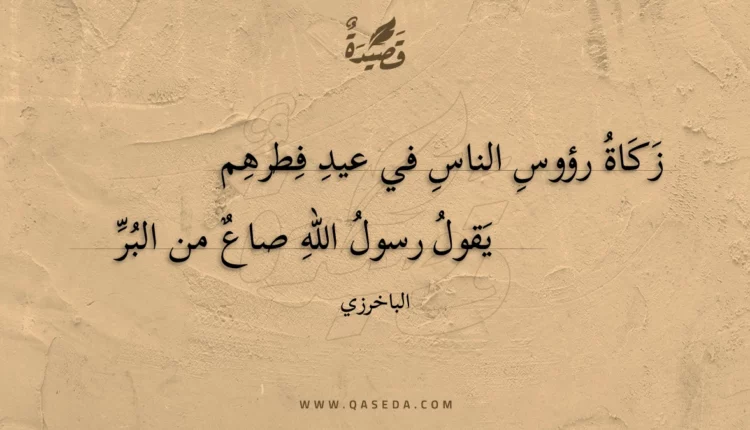 قَصِيْدَةٌ
زَكَاةُ رؤوسِ الناسِ في عيدِ فِطرهِم
يَقولُ رسولُ اللهِ صاعٌ من البُرِّ
الباخرزي
WWW.QASEDA.COM